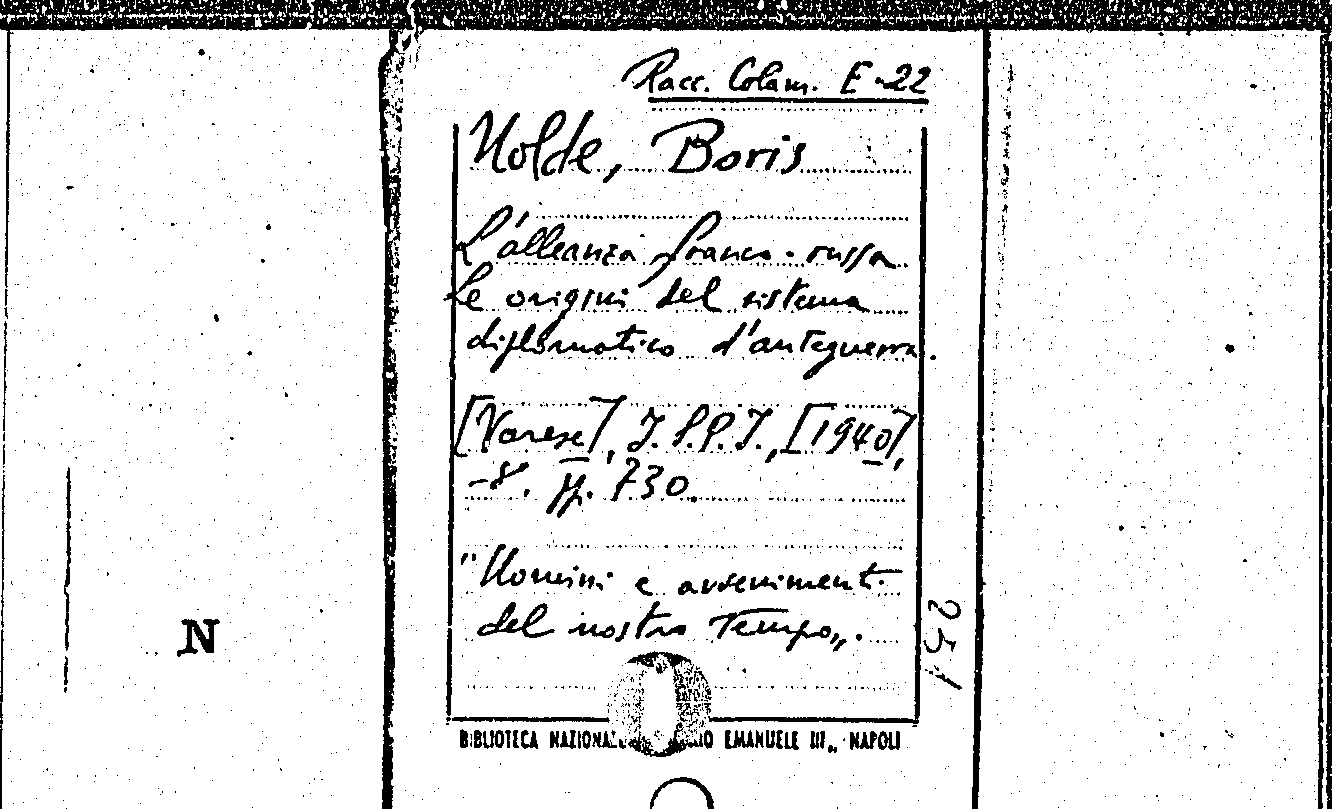 Racc. Colam. E-22
Nolde, Boris
L'alleanza franco-russa.
Le origini del sistema
diplomatico d'anteguerra.
[Varese], I.S.P.I., [1940],
-8°. pp. 730.
"Uomini e avvenimenti
del nostro tempo„.
251
N
BIBLIOTECA NAZIONALE EMANUELE III„ NAPOLI